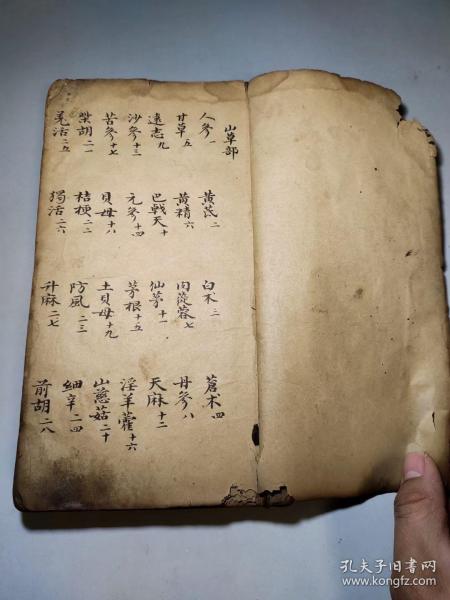 山草部
人參一 黃芪二 白术三 蒼术四
甘草五 黃精六 肉蓯蓉七 丹參八
遠志九 巴戟天十 仙茅十一 天麻十二
沙參十三 元參十四 茅根十五 淫羊藿十六
苦參十七 貝母十八 土貝母十九 山慈菇二十
柴胡二一 桔梗二二 防風二三 細辛二四
羌活二五 獨活二六 升麻二七 前胡二八
孔夫子旧书网
www.kongfz.com